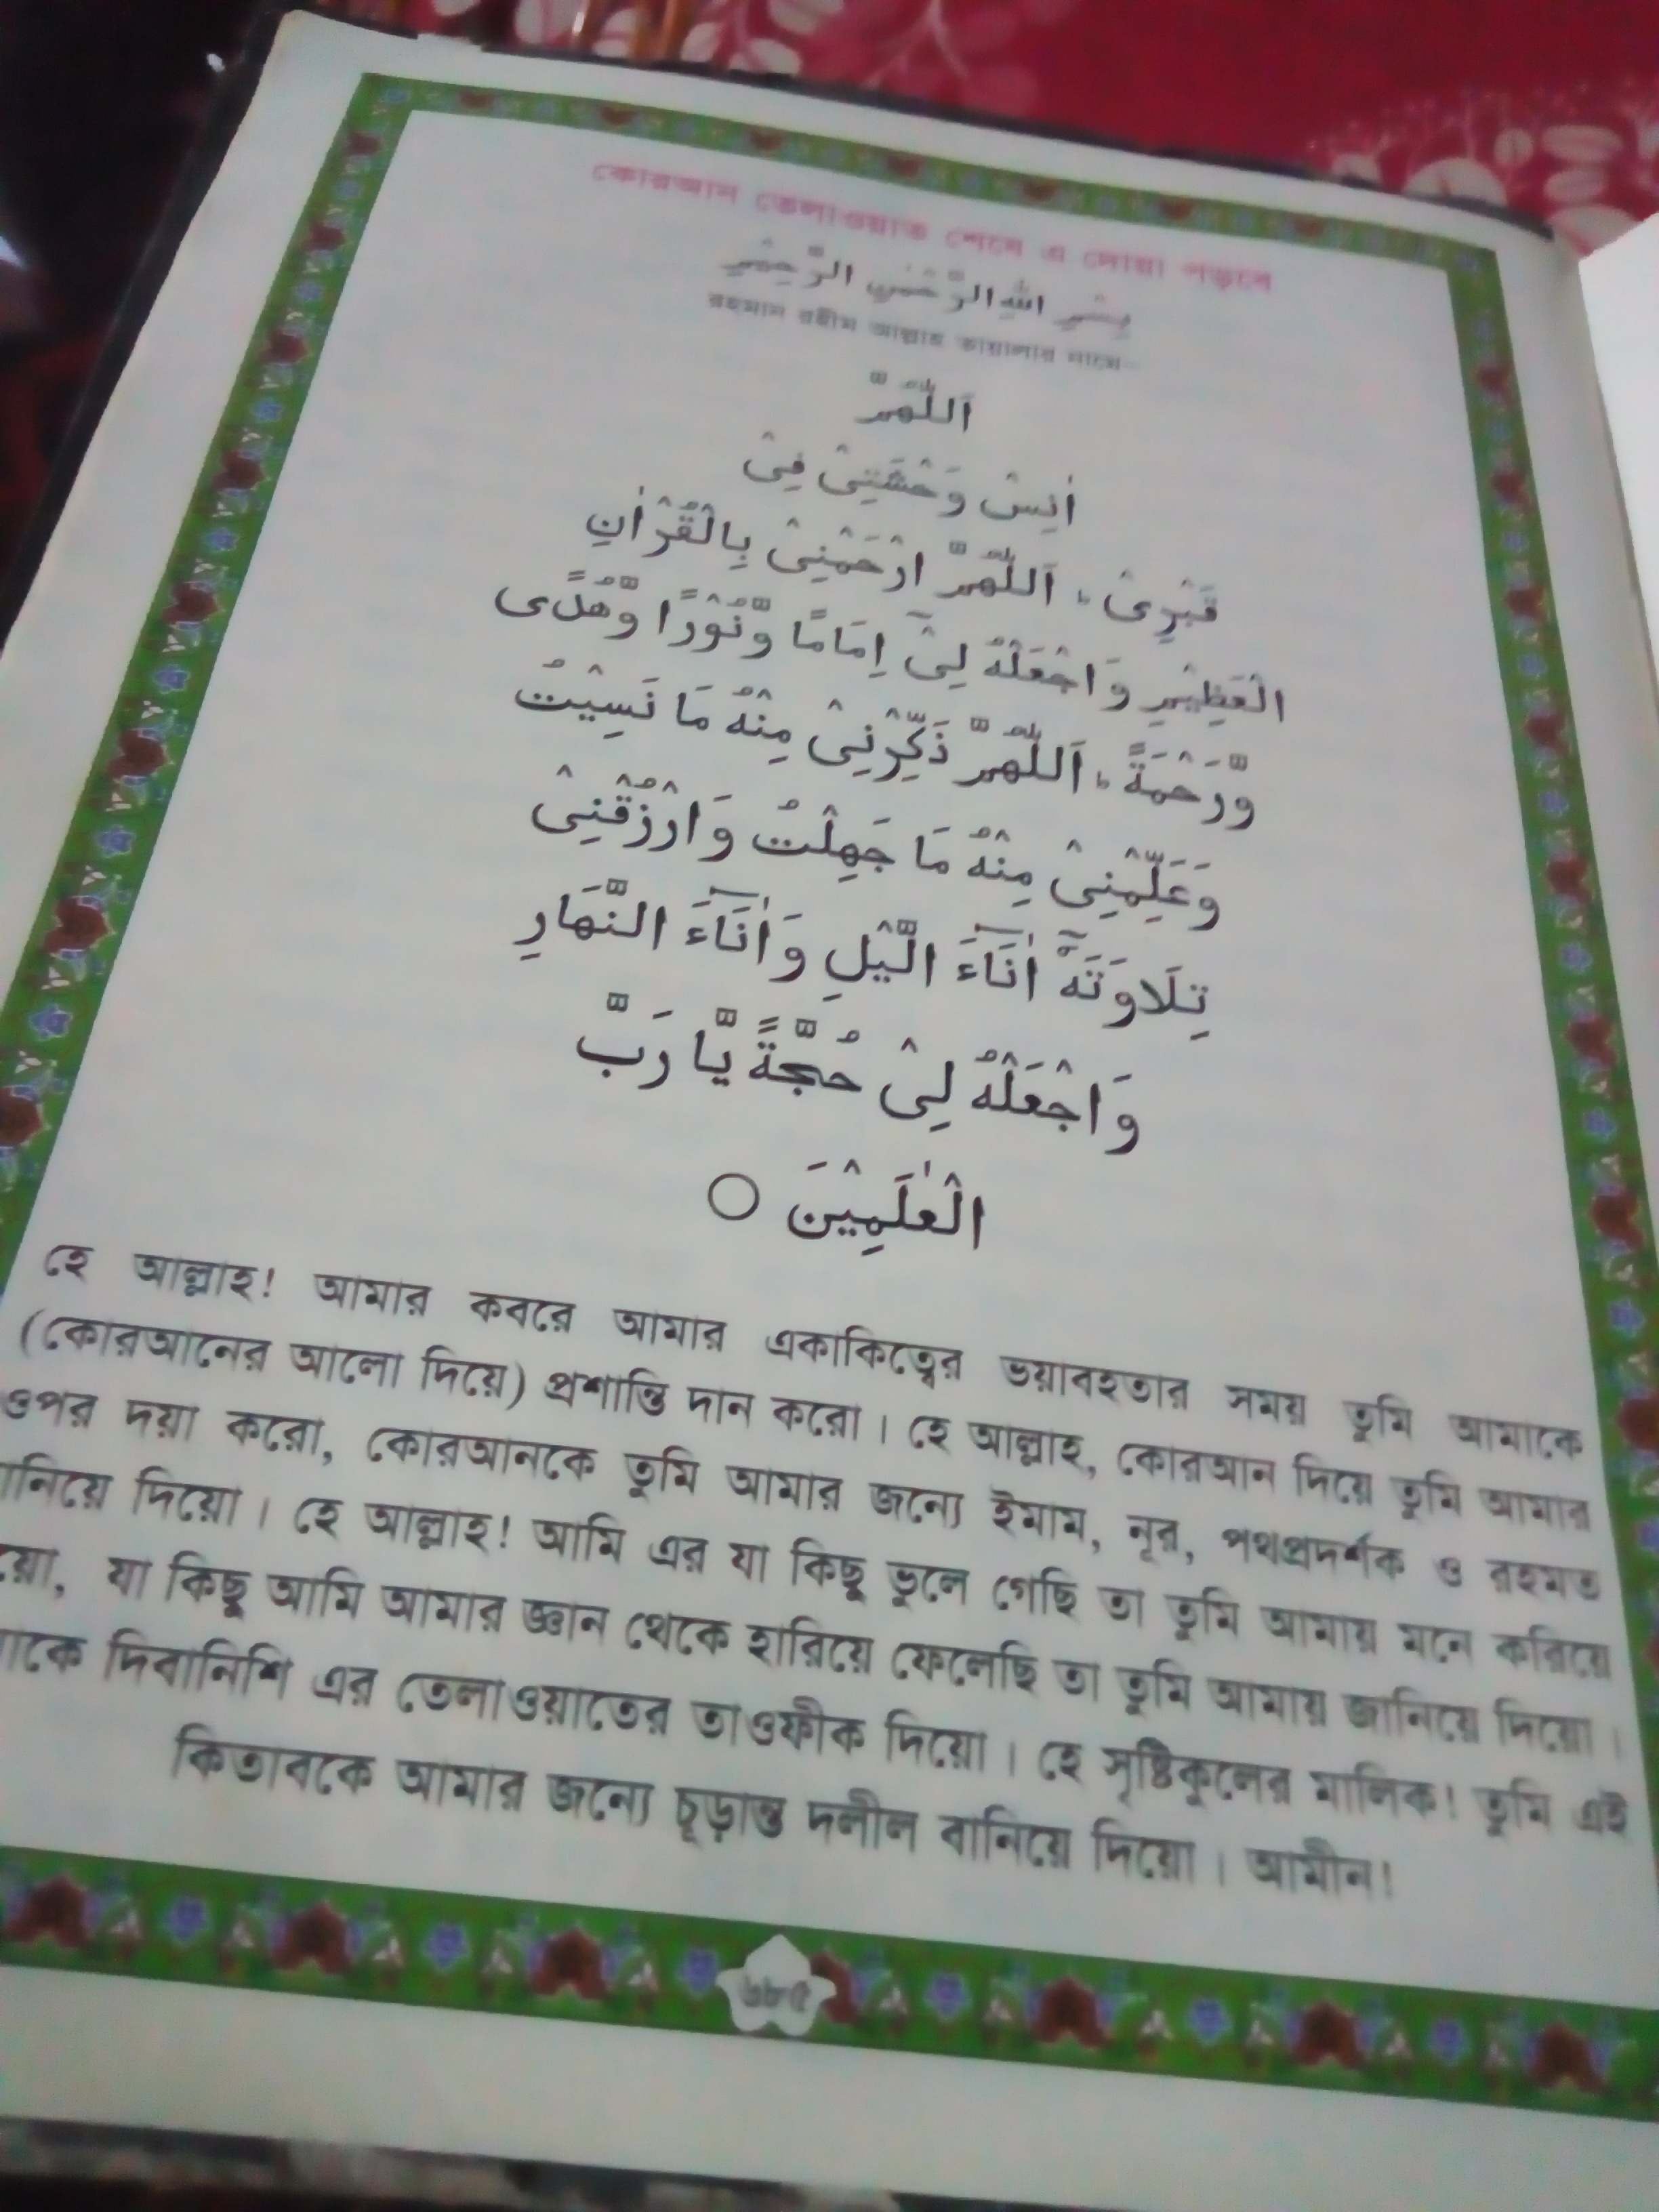 কোরআন তেলাওয়াত শেষে এ দোয়া পড়বে
بِسْمِ اللّٰهِ الرَّحْمٰنِ الرَّحِيْمِ
রহমান রহীম আল্লাহ তায়ালার নামে
اَللّٰهُمَّ
اٰنِسْ وَحْشَتِىْ فِىْ
قَبْرِىْ ؕ اَللّٰهُمَّ ارْحَمْنِىْ بِالْقُرْاٰنِ
الْعَظِيْمِ وَاجْعَلْهُ لِىْٓ اِمَامًا وَّنُوْرًا وَّهُدًى
وَّرَحْمَةً ؕ اَللّٰهُمَّ ذَكِّرْنِىْ مِنْهُ مَا نَسِيْتُ
وَعَلِّمْنِىْ مِنْهُ مَا جَهِلْتُ وَارْزُقْنِىْ
تِلَاوَتَهٗٓ اٰنَآءَ الَّيْلِ وَاٰنَآءَ النَّهَارِ
وَاجْعَلْهُ لِىْ حُجَّةً يَّا رَبَّ
الْعٰلَمِيْنَ ○
হে আল্লাহ! আমার কবরে আমার একাকিত্বের ভয়াবহতার সময় তুমি আমাকে
(কোরআনের আলো দিয়ে) প্রশান্তি দান করো। হে আল্লাহ, কোরআন দিয়ে তুমি আমার
ওপর দয়া করো, কোরআনকে তুমি আমার জন্যে ইমাম, নূর, পথপ্রদর্শক ও রহমত
নিয়ে দিয়ো। হে আল্লাহ! আমি এর যা কিছু ভুলে গেছি তা তুমি আমায় মনে করিয়ে
য়ো, যা কিছু আমি আমার জ্ঞান থেকে হারিয়ে ফেলেছি তা তুমি আমায় জানিয়ে দিয়ো।
কে দিবানিশি এর তেলাওয়াতের তাওফীক দিয়ো। হে সৃষ্টিকুলের মালিক! তুমি এই
কিতাবকে আমার জন্যে চূড়ান্ত দলীল বানিয়ে দিয়ো। আমীন!
৬৮৫